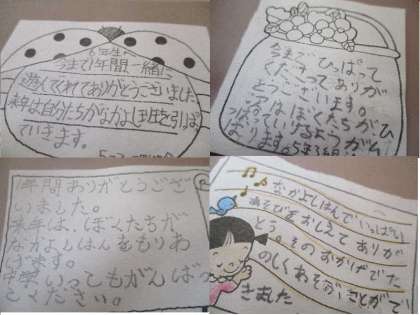 6年生
今まで1年間一緒に
遊んでくれてありがとうございました。
来年は自分たちがなかよし班を引っぱ
ていきます。
今までひっぱって
くださってありが
とうございます。
次はぼくたちがひ
ばります。5年3組
1年間ありがとうござ
いました。
来年は、ぼくたちが
なかよしはんをもりあ
げます。
中学いってもがんばっ
てください。
なかよしはんでいっぱい
あそびをおしえてありが
とう。そのおかげでた
のしくあそぶことがで
きました